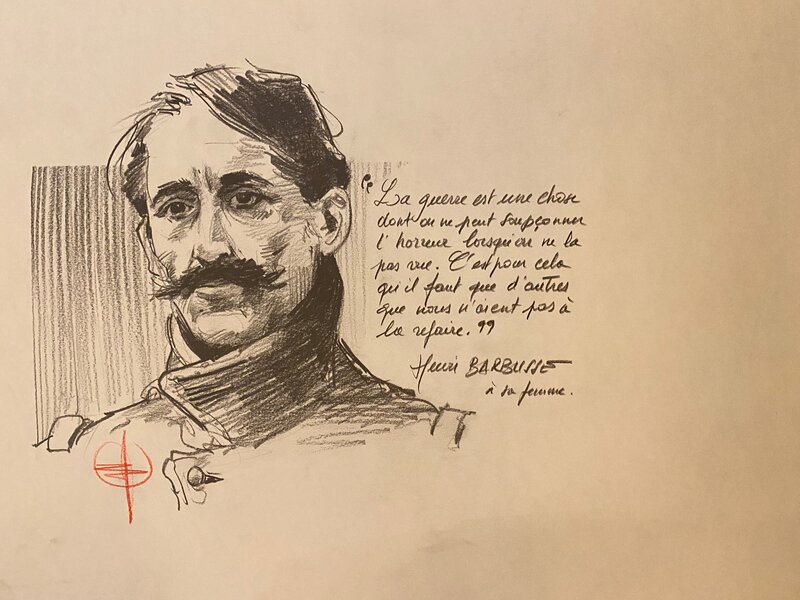 “ La guerre est une chose
dont on ne peut soupçonner
l'horreur lorsqu'on ne la
pas vue. C'est pour cela
qu'il faut que d'autres
que nous n'aient pas à
la refaire. ”
Henri BARBUSSE
à sa femme.